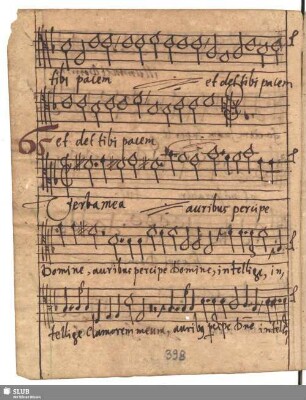 tibi pacem et det tibi pacem
et det tibi pacem
65
Verba mea auribus percipe
Domine, auribus percipe Domine, intellige, in,
tellige Clamorem meum, auribus percipe Dne, intelli,
398
SLUB